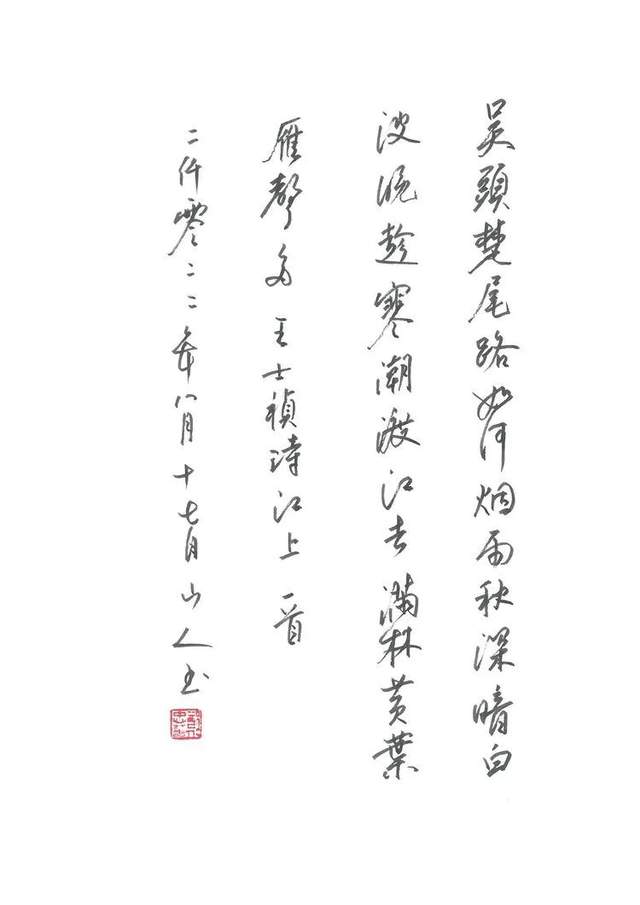 吴頭楚尾路如何烟雨秋深暗白
波晚趁寒潮渡江去滿林黄葉
雁聲多 王士禎詩江上一首
二仟零二二年八月十七日山人书